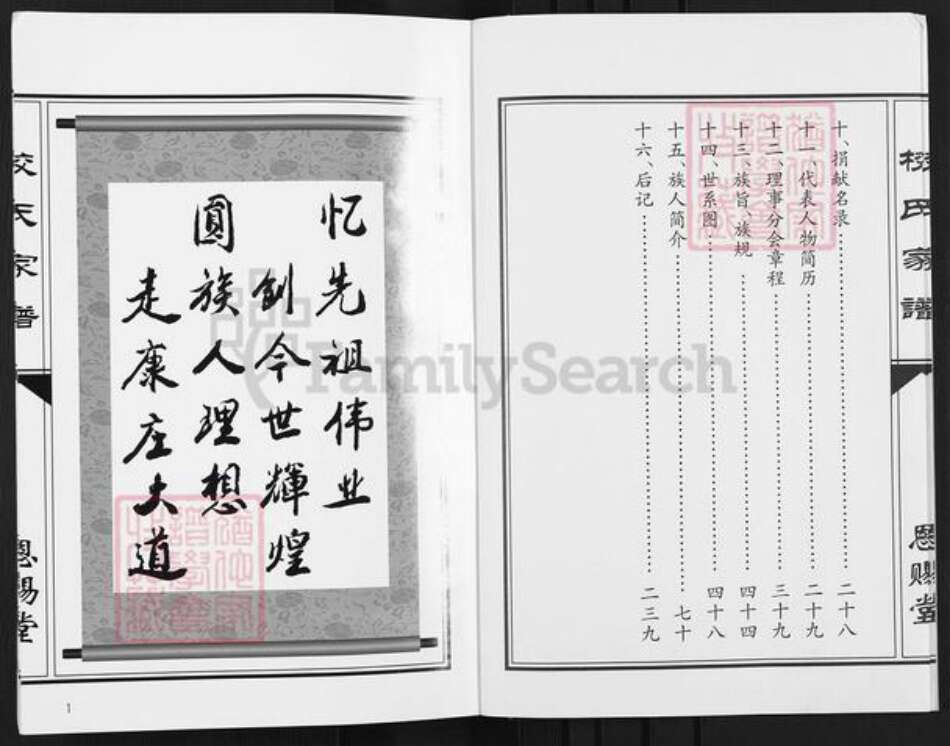 十、捐献名录……二十八
十一、代表人物简历……二十九
十二、理事分会章程……三十九
十三、族旨、族规……四十四
十四、世系图……四十八
十五、族人简介……七十
十六、后记……二三九
氏家譜
恩赐堂
忆先祖伟业
創今世輝煌
圓族人理想
走康庄大道
氏家譜
恩赐堂
1
FamilySearch